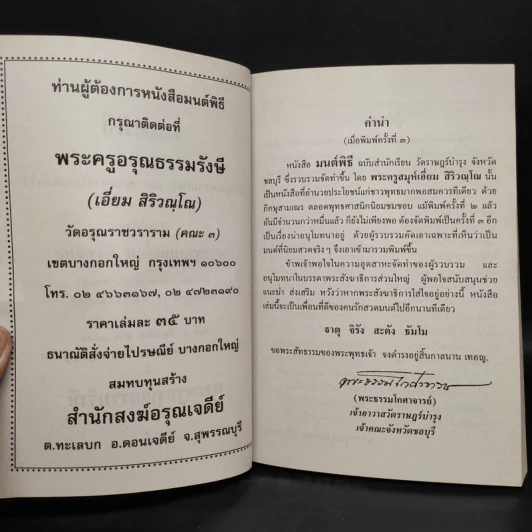 ท่านผู้ต้องการหนังสือมนต์พิธี
กรุณาติดต่อที่
พระครูอรุณธรรมรังษี
(เอี่ยม สิริวณฺโณ)
วัดอรุณราชวราราม (คณะ ๓)
เขตบางกอกใหญ่ กรุงเทพฯ ๑๐๖๐๐
โทร. ๐๒ ๔๖๖๓๑๖๗, ๐๒ ๔๗๒๓๑๙๐
ราคาเล่มละ ๓๕ บาท
ธนาณัติสั่งจ่ายไปรษณีย์ บางกอกใหญ่
สมทบทุนสร้าง
สำนักสงฆ์อรุณเจดีย์
ต.ทะเลบก อ.ดอนเจดีย์ จ.สุพรรณบุรี
คำนำ
(เมื่อพิมพ์ครั้งที่ ๓)
หนังสือ มนต์พิธี ฉบับสำนักเรียน วัดราษฎร์บำรุง จังหวัด
ชลบุรี ซึ่งรวบรวมจัดทำขึ้น โดย พระครูสมุห์เอี่ยม สิริวณฺโณ นั้น
เป็นหนังสือที่อำนวยประโยชน์แก่ชาวพุทธมากพอสมควรทีเดียว ด้วย
ภิกษุสามเณร ตลอดพุทธศาสนิกนิยมชมชอบ แม้พิมพ์ครั้งที่ ๒ แล้ว
อันมีจำนวนกว่าหมื่นแล้ว ก็ยังไม่เพียงพอ ต้องจัดพิมพ์เป็นครั้งที่ ๓ อีก
เป็นเรื่องน่าอนุโมทนาอยู่ ด้วยผู้รวบรวมคัดเอาเฉพาะที่เห็นว่าเป็น
มนต์ที่นิยมสวดจริง ๆ จึงเอาเข้ามารวมพิมพ์ขึ้น
ข้าพเจ้าพอใจในความอุตสาหะจัดทำของผู้รวบรวม และ
อนุโมทนาในบรรดาพระสังฆาธิการส่วนใหญ่ ผู้พอใจสนับสนุนช่วย
แนะนำ ส่งเสริม หวังว่าหากพระสังฆาธิการใส่ใจอยู่อย่างนี้ หนังสือ
เล่มนี้จะเป็นเพื่อนที่ดีของคนรักสวดมนต์ไปอีกนานทีเดียว
ธาตุ จิรัง สะตัง ธัมโม
ขอพระสัทธรรมของพระพุทธเจ้า จงดำรงอยู่สิ้นกาลนาน เทอญ.
(พระธรรมโกศาจารย์)
เจ้าอาวาสวัดราษฎร์บำรุง
เจ้าคณะจังหวัดชลบุรี